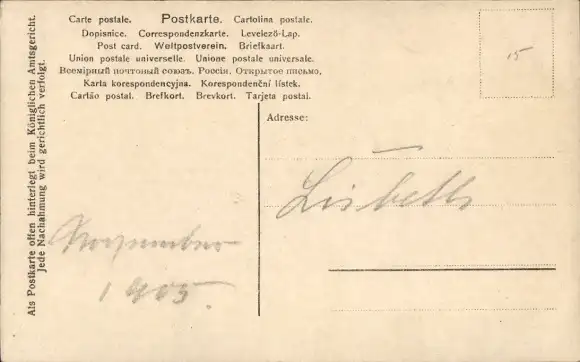 Carte postale. Postkarte. Cartolina postale.
Dopisnice. Correspondenzkarte. Levelező-Lap.
Post card. Weltpostverein. Briefkaart.
Union postale universelle. Unione postale universale.
Всемірный почтовый союзъ. Россіи. Открытое письмо.
Karta korespondencyjna. Korespondenční lístek.
Cartão postal. Brefkort. Brevkort. Tarjeta postal.
15
Als Postkarte offen hinterlegt beim Königlichen Amtsgericht.
Jede Nachahmung wird gerichtlich verfolgt.
Adresse:
Lisbeth
November
1905.